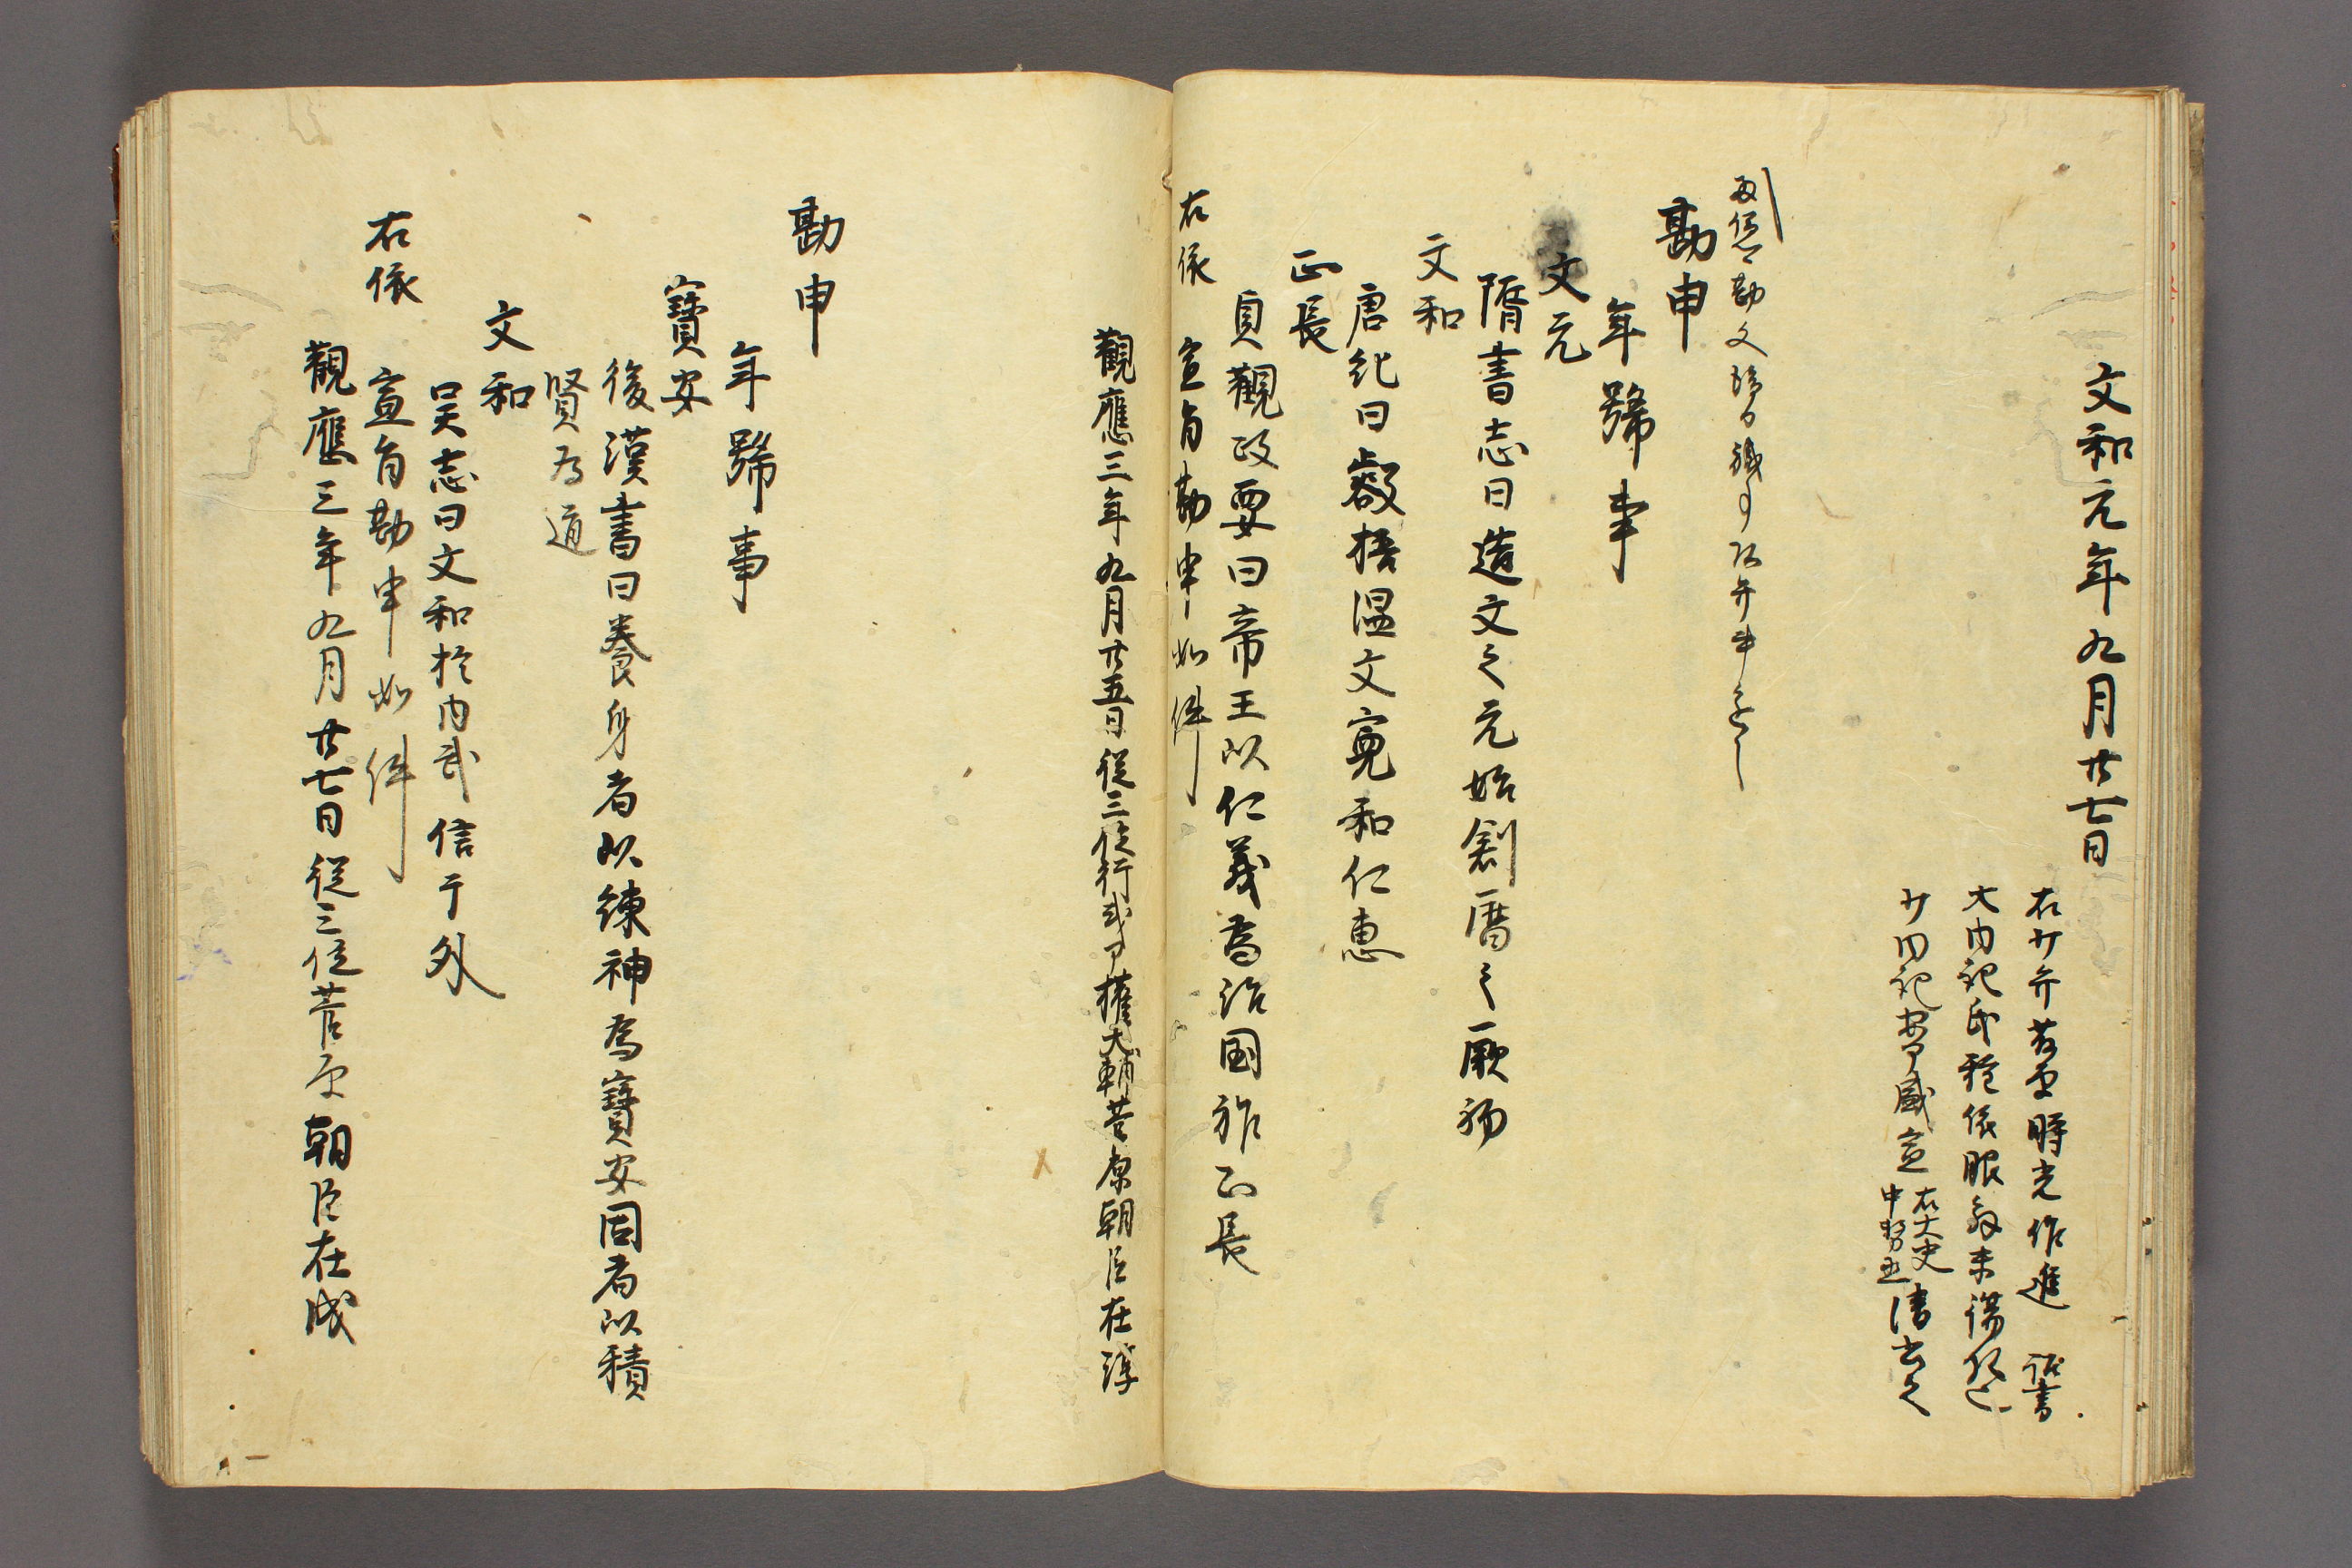 文和元年九月廿七日
右少弁藤原時光作進 詔書
大内記氏種依服余未満
少内記安部盛宣 右大史
中務丞 清書之
勘申
年號事
文元
隋書志曰造文之元始創曆之厥初
文和
唐紀曰叡捂温文寛和仁恵
正長
貞觀政要曰帝王以仁義為治国祚正長
右依 宣旨勘申如件
觀應三年九月廿五日 従三位行式了權大輔菅原朝臣在淳
勘申
年號事
寶安
後漢書曰養身者以練神為寶安国者以積
賢為道
文和
吴志曰文和於内武信于外
右依 宣旨勘申如件
觀應三年九月廿七日 従三位菅原朝臣在成